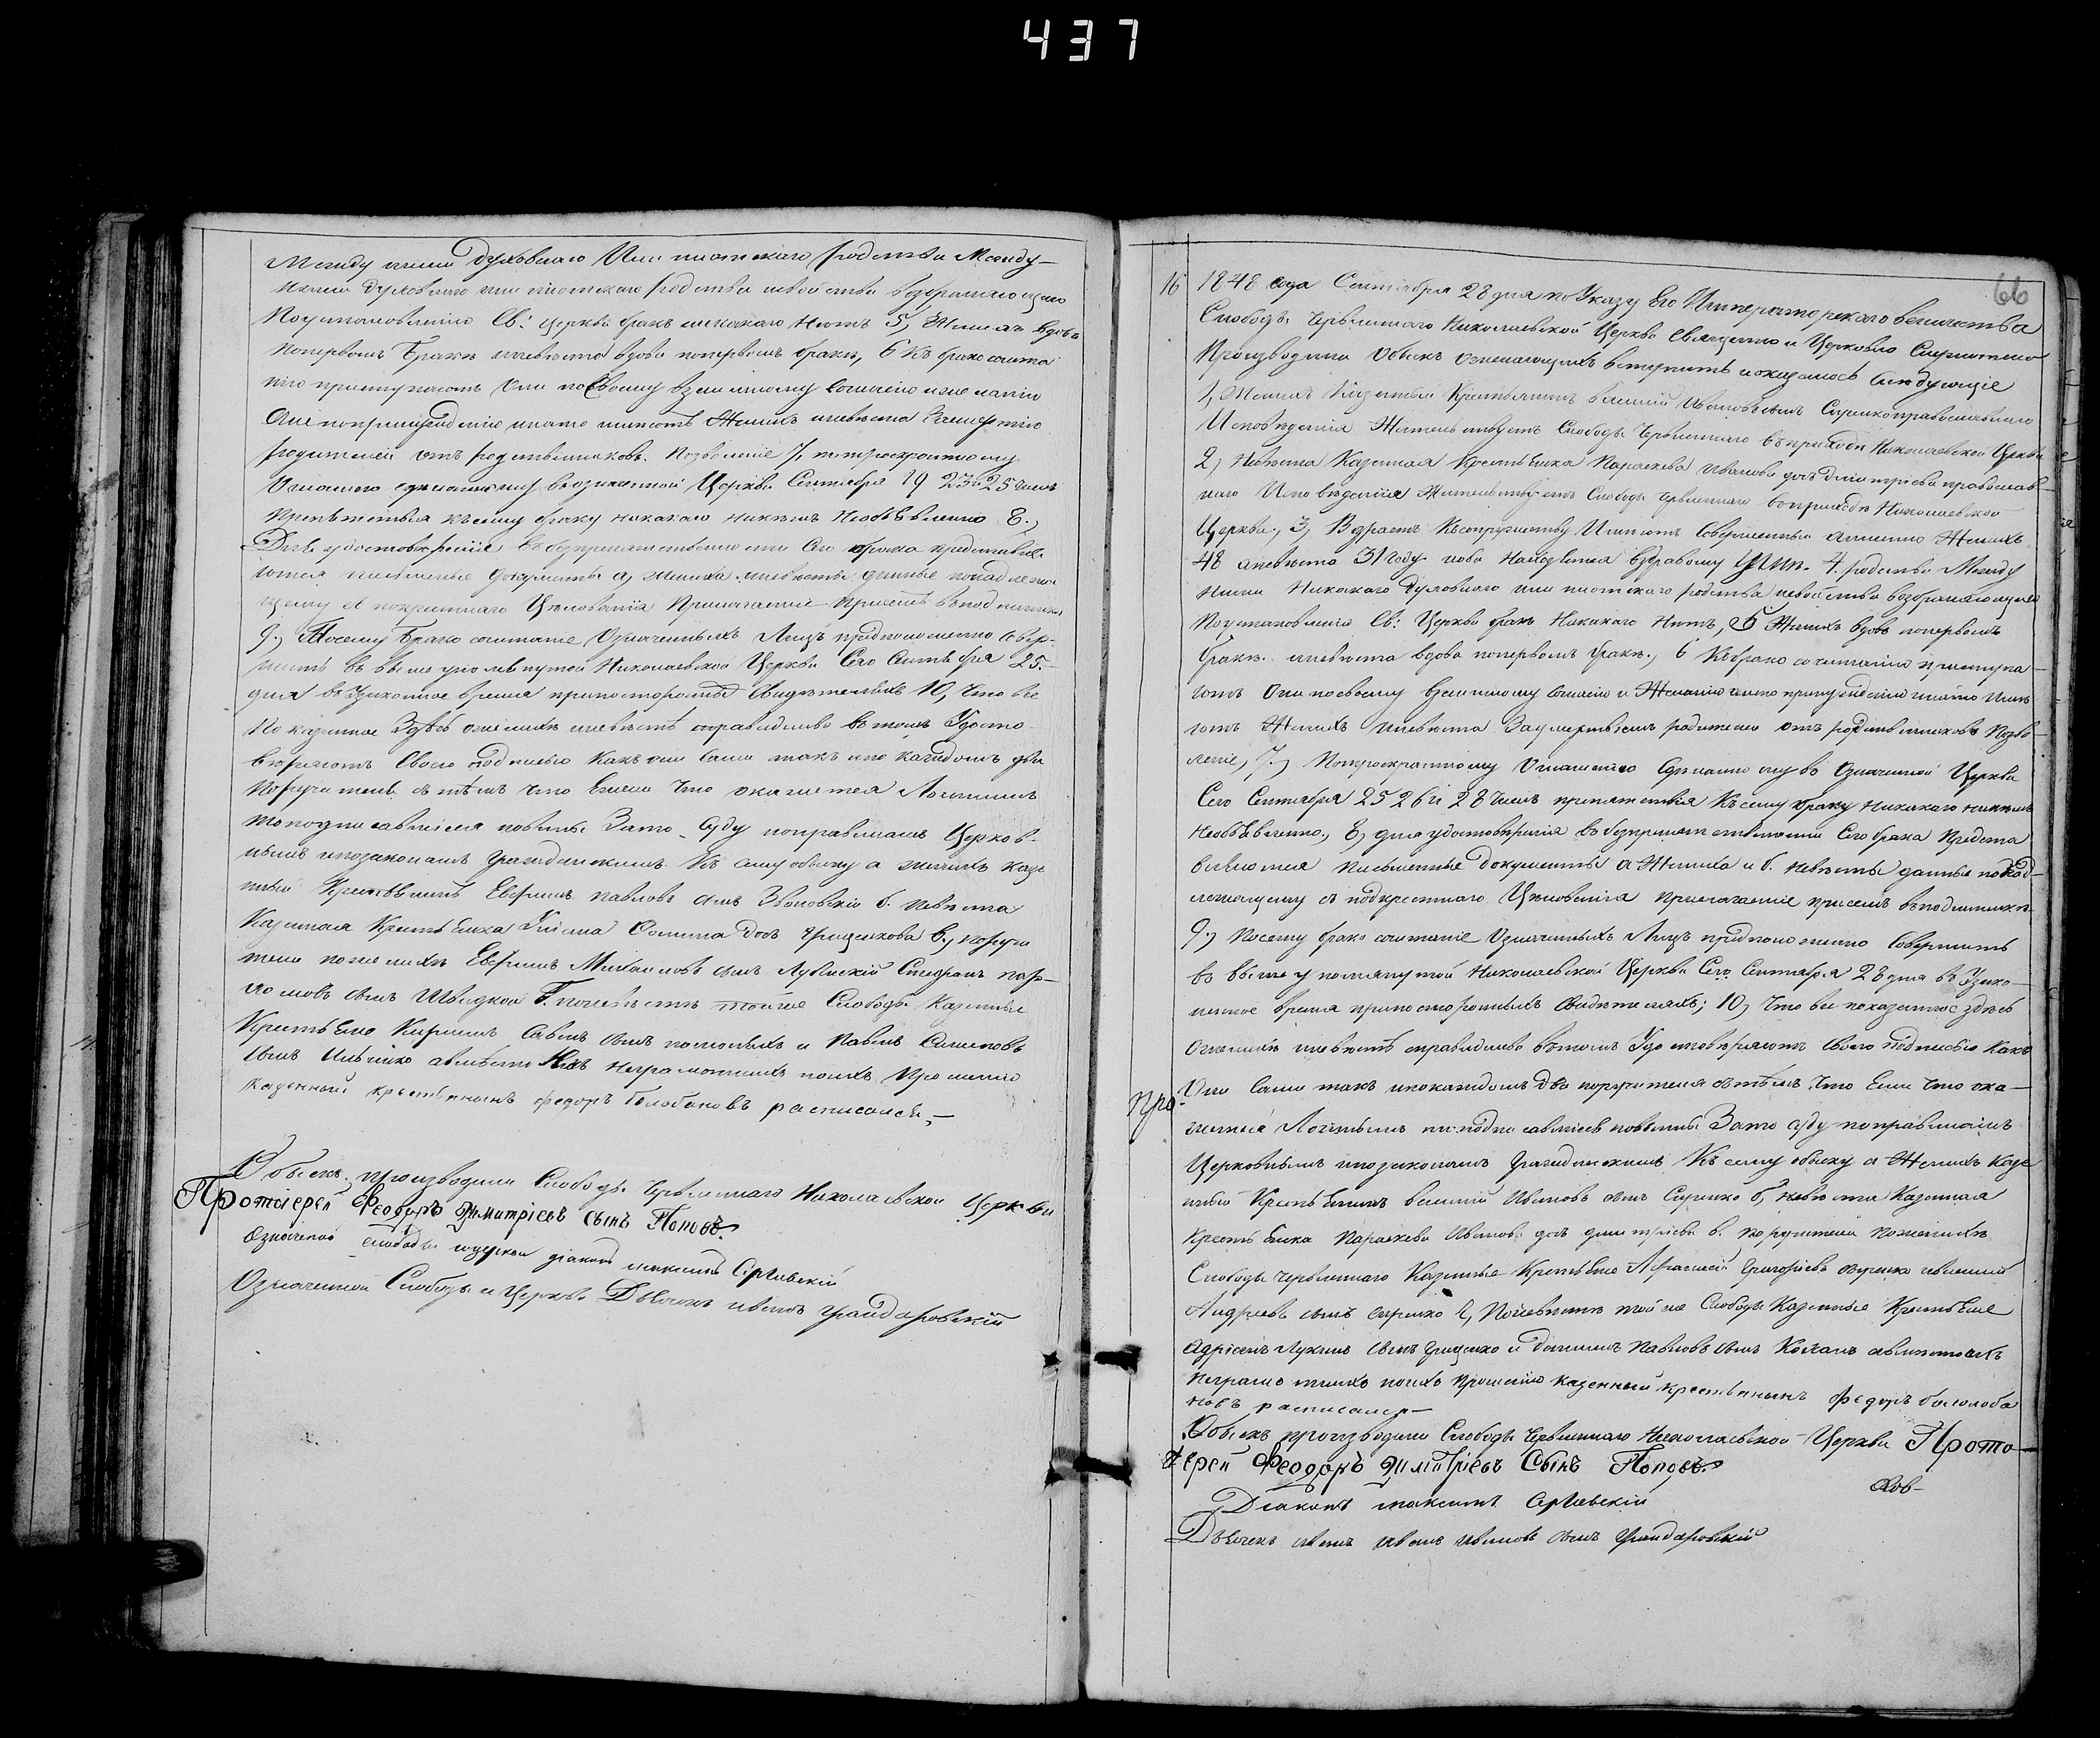 437
Между ними духовнаго Или плотскаго родства Между-
ними духовнаго или плотскаго родства и свойства возбраняющаго
По установленію Св: церкви бракъ никакаго Нетъ 5, Женихъ вдовъ
по первомъ Бракѣ и невѣста вдова по первомъ бракѣ, 6 Къ брако сочета
нію приступаютъ Они по Своему взаимному Согласію и желанію
А не по принужденію на то имеютъ Женихъ и невѣста
родителей отъ родственниковъ. Позволеніе 7, по троекратному
Оглашенію сделанному в означенной Церкви Сентября 19 23 и 25 чиселъ
Препятствія къ сему браку никакаго никѣмъ Необъявленно 8.,
Для удостовѣренія въ безпрепятственности Сего брака представля
ются письменные документы а, жениха и невесты данные по надлежа
щему съ покрестнаго Цѣлованія Прилагаеміе При семъ въ подлиннике
9., Посему Брако сочетаніе Означенныхъ Лицъ предположенно Совер-
шить въ выше упомянутой Николаевской Церкви Сего Сентября 25.
дня въ Узаконное время при постороннихъ Свидетеляхъ 10, Что все
Показанное Здѣсь о женихѣ и невѣстѣ справедливо въ томъ Удосто-
вѣряютъ Своею подписью Какъ они Сами такъ и по каждомъ два
Поручителя съ тѣмъ что Ежели Что окажется Ложнымъ
то подписавшіеся повинны За то Суду по правиламъ Церков-
нымъ и по законамъ Гражданскимъ. Къ сему обыску а женихъ казе
нный Крестьянинъ Евфимъ павловъ сынъ б. невѣста
Казенная Крестьянка дочь Грищенкова в., поручи
тели по женихѣ Евфимъ Михаиловъ сынъ Лубянскій пар-
ѳомовъ сынъ Швидкой Г. по невѣстѣ той же Слободы Казенные
Крестьяне Кириллъ Савинъ сынъ и Павелъ Симеоновъ
сынъ Ильченко а вмѣсто Ихъ неграмотныхъ по ихъ Прошенію
казенный крестьянинъ федоръ Голобоковъ расписался,-
Обыскъ производили Слободы Червленнаго Николаевской Церкви
Протоіерей Феодоръ Димитріевъ сынъ Поповъ.
Означеной слободы и церкви діаконъ максимъ Сергіевскій
Означенной Слободы и Церкви Дьячокъ иванъ
66
16 1848 года Сентября 28 дня по Указу Его Императорскаго величества
Слободы Червленнаго Николаевской Церкви Священно и Церковно Служители
Производили Обыскъ о желающихъ вступить и оказалось Следующіе
1, Женихъ Казенный Крестьянинъ василій Ивановъ сынъ Сиренко православнаго
Исповѣданія Жительствуетъ Слободы Червленнаго въ приходе Николаевской Церкви
2, Невѣста Казенная Крестьянка Параскева Иванова дочь дмитріева православ-
наго Исповѣданія Жительствуетъ Слободы Червленнаго въ приходѣ Николаевской
Церкви., 3, Возрастъ Къ супружеству Имѣютъ Совершенный а именно Женихъ
48 а невѣста 31 году и оба Находятся в здравомъ Умѣ. 4. родства Между
Ними Никакаго Духовнаго или плотскаго родства и свойства возбраняющаго
По установленію Св: Церкви бракъ Никакаго Нетъ, 5 Женихъ вдовъ по первомъ
бракѣ. и невѣста вдова по первомъ бракѣ., 6 Къ брако сочетанію приступа-
ютъ Они по своему взаимному Согласію и Желанію а не по принужденію на то Име
ютъ Женихъ И невѣста За умертвіемъ родителей отъ родственниковъ Позво-
леніе, 7., По троекратному Оглашенію сделанному во Означенной Церкви
Сего Сентября 25 26 и 28 чиселъ препятствія Къ сему браку никакаго никѣмъ
Необъявленно., 8, для удостовѣренія въ безпрепятственности Сего брака Предста
вляются Письменные документы а Жениха и б. Невѣсты данные по над-
лежащему съ подкрестнаго Цѣлованія Прилагаеміе при семъ въ подлиннике
9., Посему брако сочетаніе Означенныхъ Лицъ предположенно Совершить
въ выше упомянутой Николаевской Церкви Сего Сентября 28 дня въ Узако-
ненное время при постороннихъ Свидѣтеляхъ; 10, Что все показанное здѣсь
О женихѣ и невѣстѣ справедливо въ томъ Удостовѣряютъ Своею подписью Какъ
Они Сами такъ и по каждомъ два поручителя съ тѣмъ Что Ежели Что ока-
Про.
жется Ложнымъ то подписавшіеся повинны За то суду по правиламъ
Церковнымъ и по законамъ Гражданскимъ Къ сему обыску а Женихъ Казе
нный Крестьянинъ василій Ивановъ сынъ Сиренко б, невѣста Казенная
Крестьянка Параскева Иванова дочь дмитріева в. поручители по женихѣ
Слободы Червленнаго Казенные Крестьяне Григорьевъ
Андреевъ сынъ Сиренко г, По невѣстѣ той же Слободы Казенные Крестьяне
Адріянъ Лукинъ сынъ Грищенко и Даніилъ Павловъ сынъ а вмѣсто ихъ
Неграмотныхъ по ихъ прошенію казенный крестьянинъ Федоръ
новъ расписался-
Обыскъ производили Слободы Червленнаго Николаевской Церкви Прото-
іерей Феодоръ Димитріевъ Сынъ Поповъ.
Діаконъ максимъ Сергіевскій
Дьячекъ иванъ ивановъ сынъ